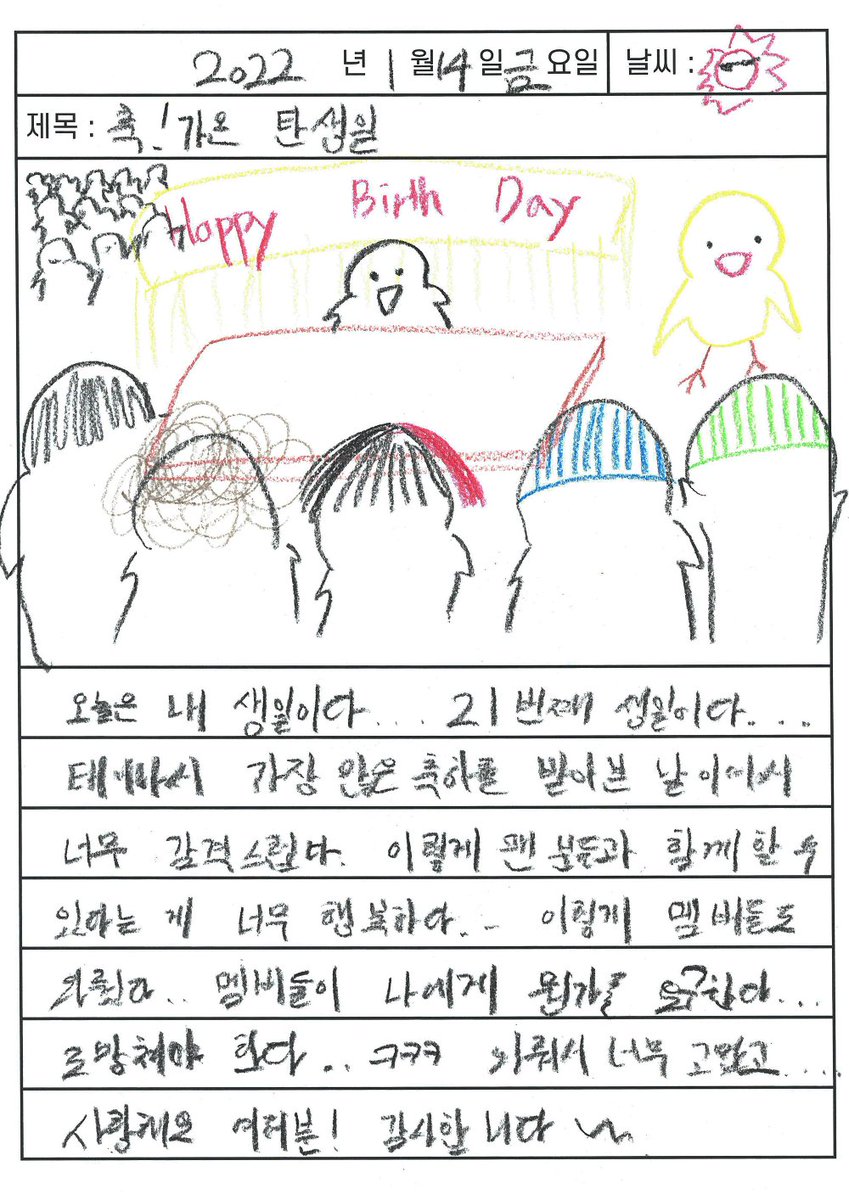 2022 년 1 월 14 일 금 요일 날씨 :
제목 : 축! 가온 탄생일
Happy Birth Day
오늘은 내 생일이다.... 21번째 생일이다....
태어나서 가장 많은 축하를 받아본 날이어서
너무 감격스럽다. 이렇게 팬분들과 함께할 수
있다는 게 너무 행복하다... 이렇게 멤버들도
.. 멤버들이 나에게 뭔가를 요구한다...
도망쳐야 한다.. ㅋㅋㅋ 너무 고맙고....
사랑해요 여러분! 감사합니다